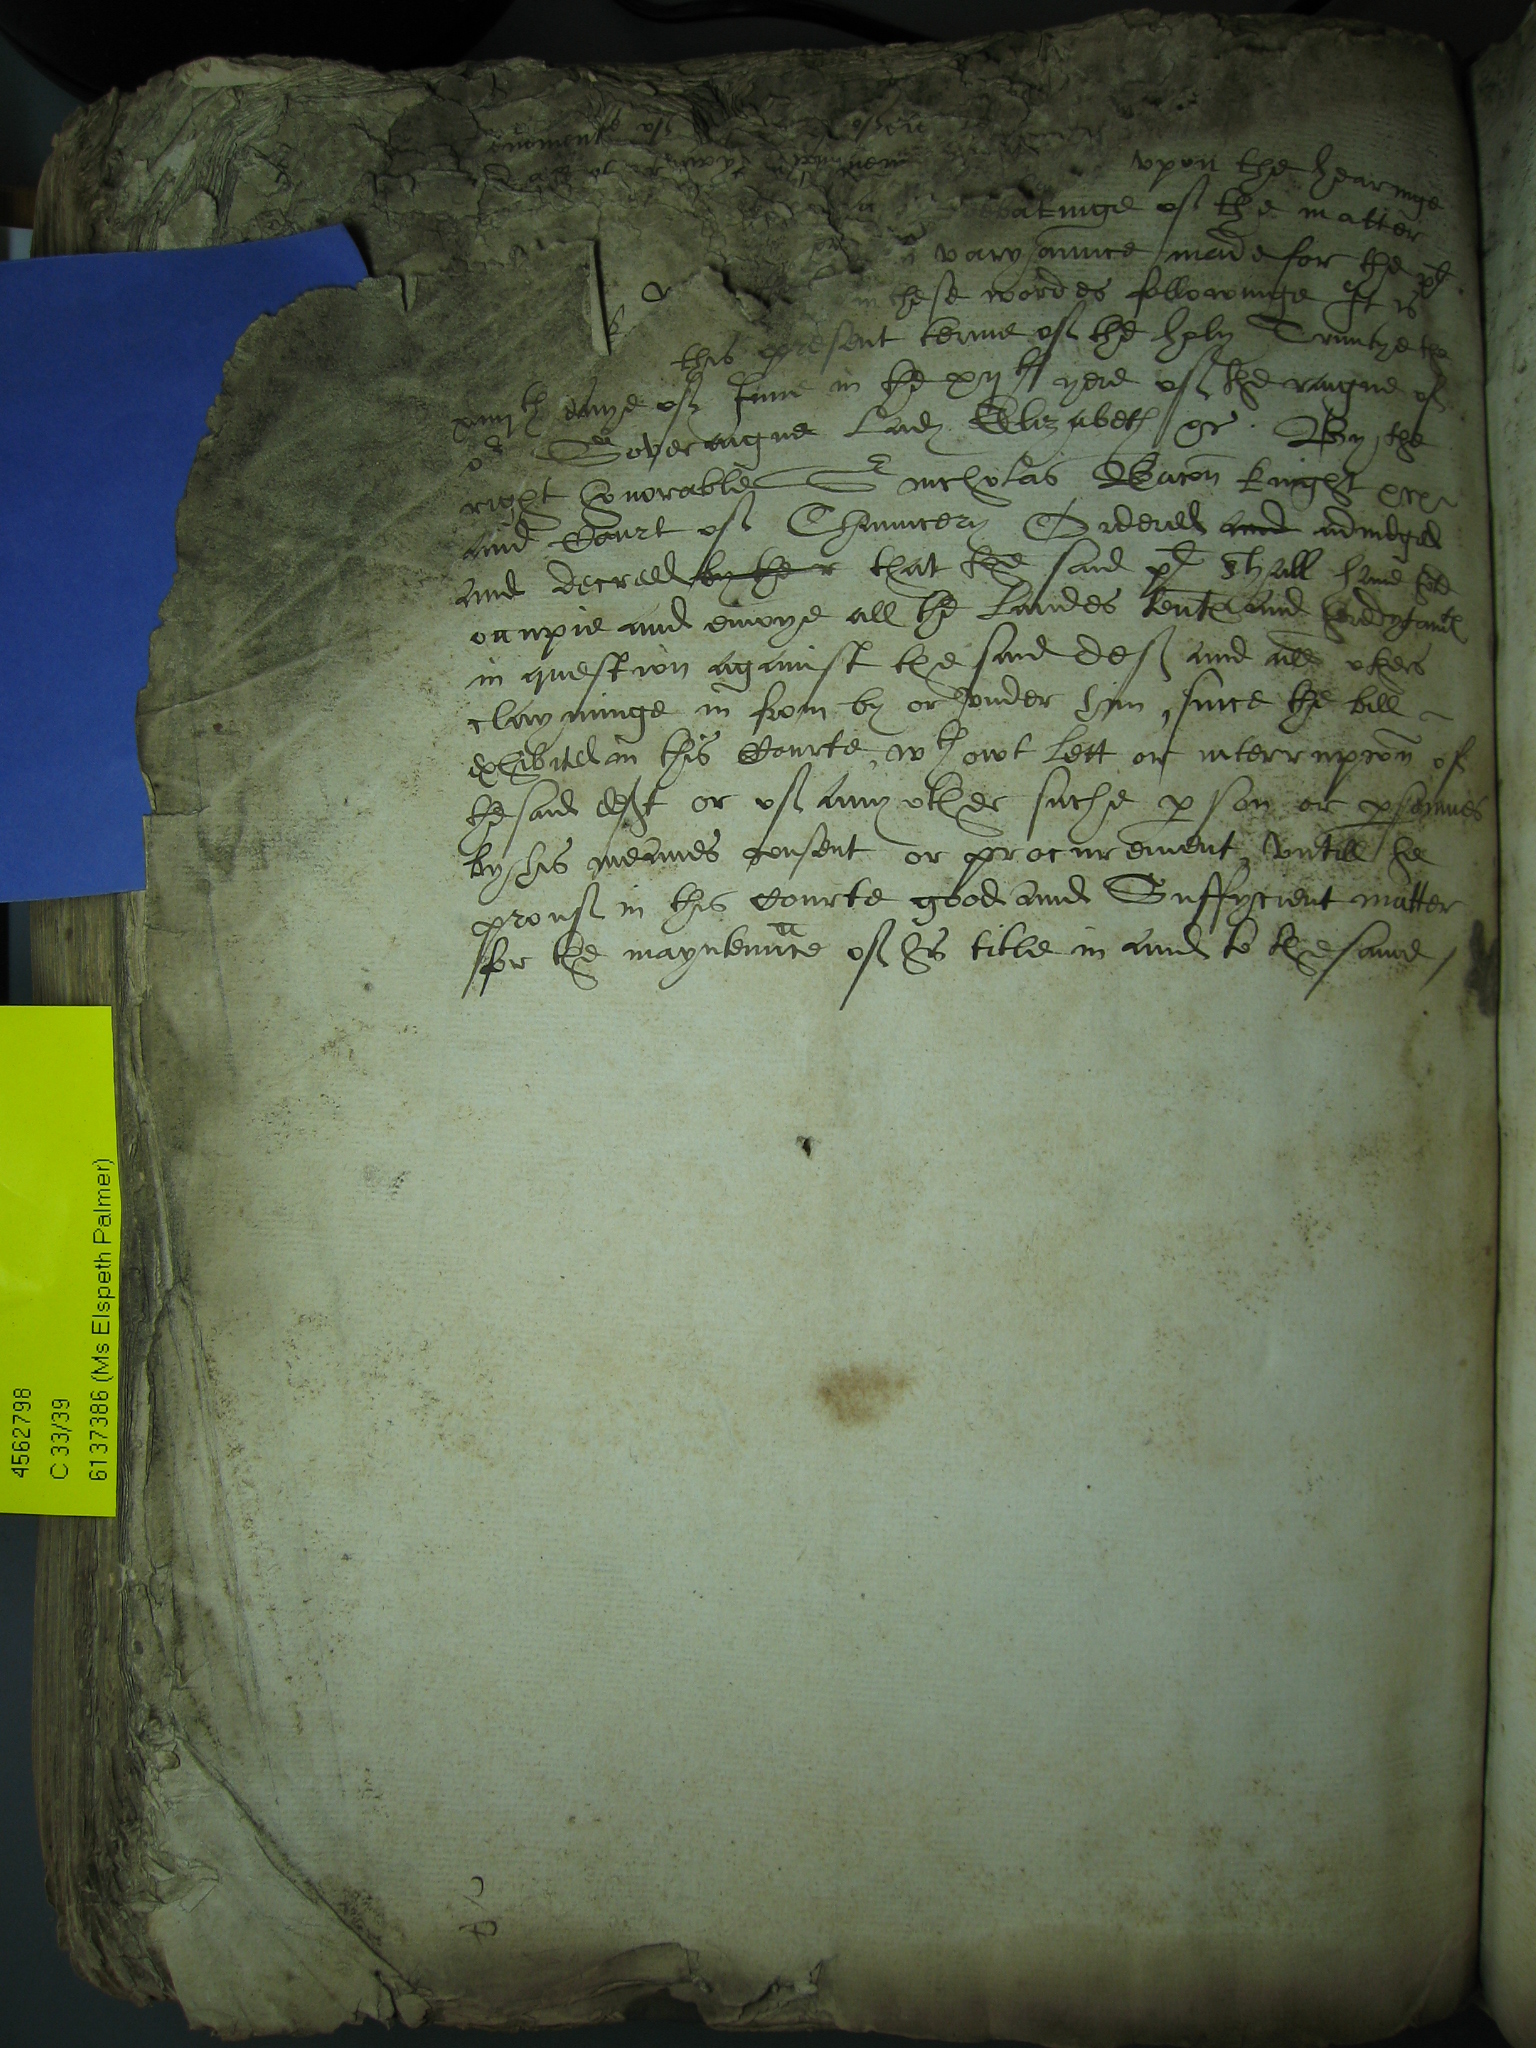 upon the hearinge
debatinge of the matter
varyaunce made for the pl
in these wordes followinge It is
this present terme of the holy Trinitye the
xiiijth daye of June in the xijth yere of the raigne of
or Soveraigne Lady Elizabeth &c. By the
right honorable Sr Nicholas Bacon knight &c
and Court of Chauncery Ordered and adiudged
and decreed by the r that the said pl shall have hold
occupie and enioye all the Landes tents and heredytamts
in question against the said def and all others
clayminge in from by or under him, since the bill
exhibited in this Courte, wthowt lett or interrupcon of
the said deft or of any other suche pson or psonnes
by his meanes consent or procurement, untill he
prove in this Courte good and Suffycient matter
for the mayntennce of his title in and to the same /
a
4562798
C 33/39
6137386 (Ms Elspeth Palmer)